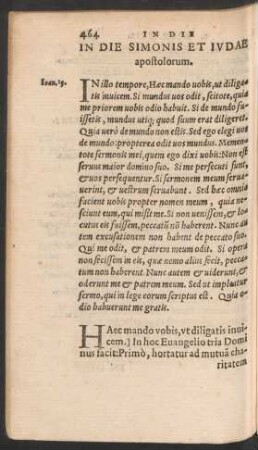 464. IN DIE
IN DIE SIMONIS ET IVDAE
apostolorum.
Ioan. 15. IN illo tempore, Hæc mando uobis, ut diliga
tis inuicem. Si mundus uos odit, scitote, quia
me priorem uobis odio habuit. Si de mundo fu-
issetis, mundus utiq; quod suum erat diligeret.
Quia uerò de mundo non estis. Sed ego elegi uos
de mundo: propterea odit uos mundus. Memen-
tote sermonis mei, quem ego dixi uobis: Non est
seruus maior domino suo. Si me persecuti sunt,
& uos persequentur. Si sermonem meum serua-
uerint, & uestrum seruabunt. Sed hæc omnia
facient uobis propter nomen meum, quia ne-
sciunt eum, qui misit me. Si non uenissem, & lo-
cutus eis fuissem, peccatũ nõ haberent. Nunc au-
tem excusationem non habent de peccato suo.
Qui me odit, & patrem meum odit. Si opera
non fecissem in eis, quæ nemo alius fecit, pecca-
tum non haberent. Nunc autem & uiderunt, &
oderunt me & patrem meum. Sed ut impleatur
sermo, qui in lege eorum scriptus est. Quia o-
dio habuerunt me gratis.
HAec mando vobis, vt diligatis inui-
cem.) In hoc Euangelio tria Domi
nus facit: Primò, hortatur ad mutuã cha-
ritatem